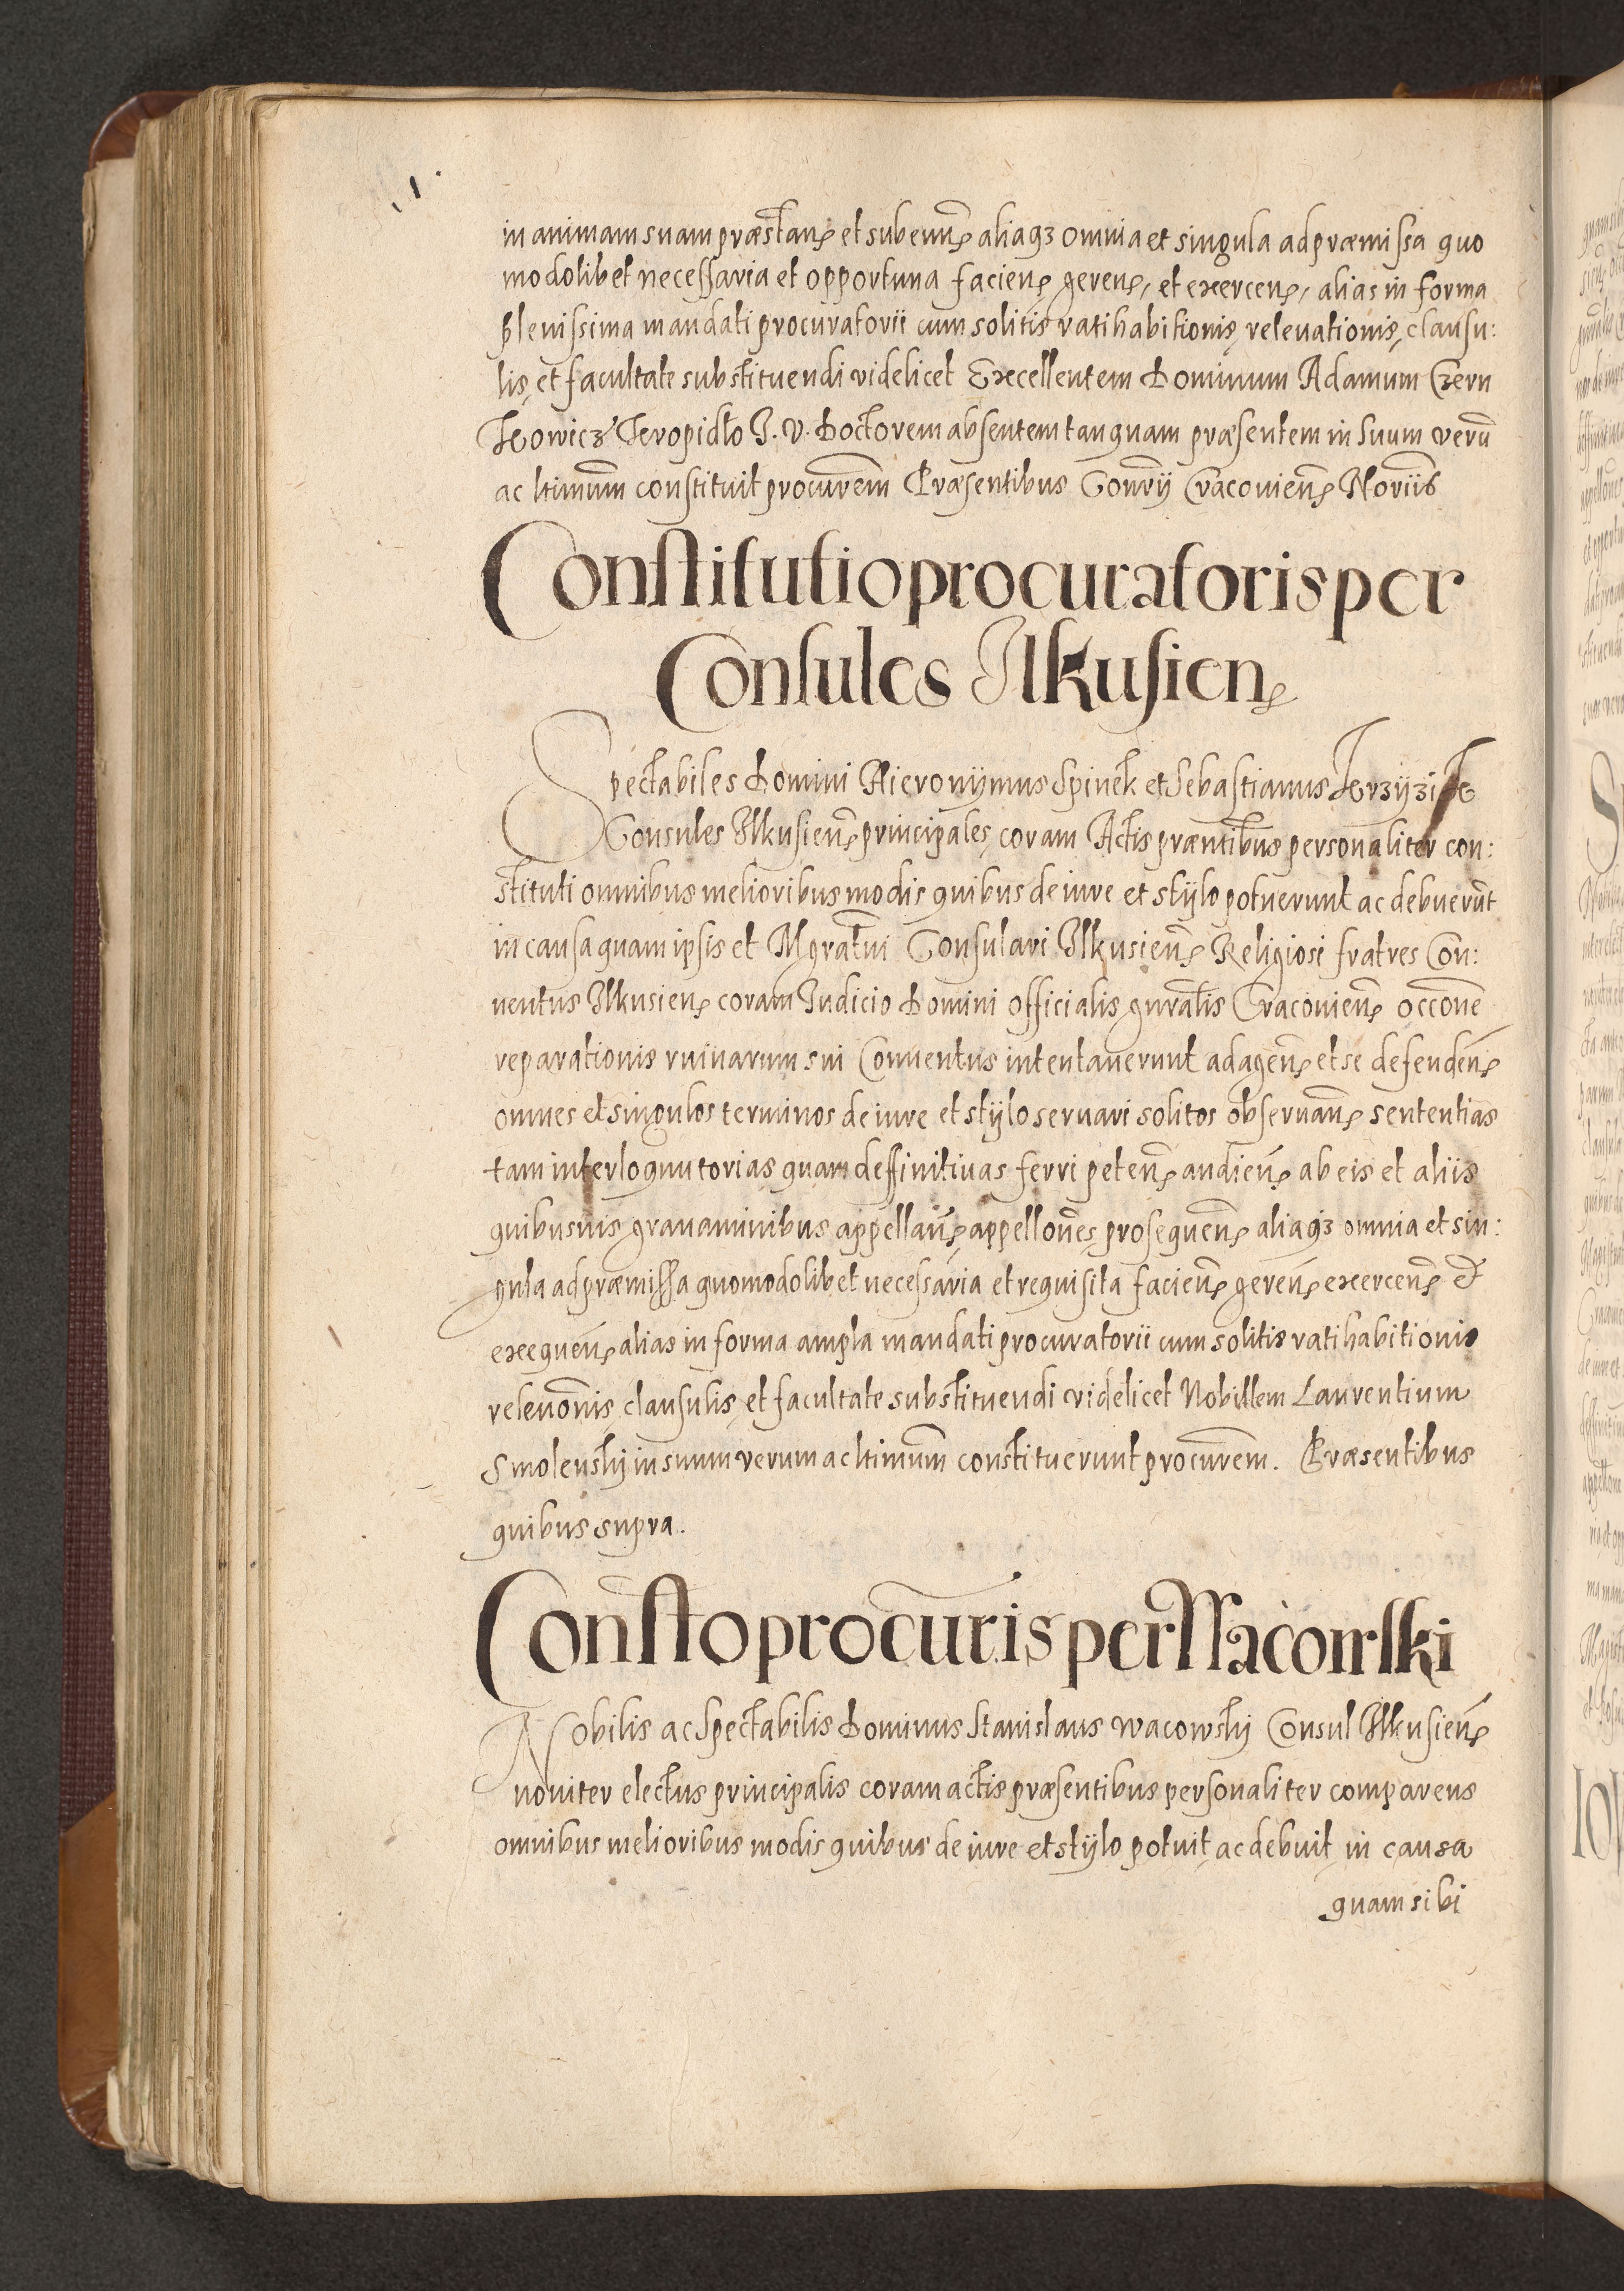 in animam suam præstanꝭ et subeunꝭ aliaqꝫ omnia et singula ad præmissa quo
modolibet necessaria et opportuna facienꝭ gerenꝭ, et exercenꝭ, alias in forma
plenissima mandati procuratorii cum solitis ratihabitionis relevationis, clausu:
lis, et facultate substituendi videlicet Excellentem Dominum Adamum Czern
J. V. Doctorem absentem tanquam præsentem in suum verū
ac ltimum̄ constituit procurem̄ Præsentibus Cracovienꝭ Noriis̄
Constitutio procuratoris per
Consules Ilkusienꝭ
Spectabiles Domini Hieronymus Spinek et Sebastianus
Consules Ilkusienꝭ principales, coram Actis præntibus̄ personaliter con:
stituti omnibus melioribus modis quibus de iure et stylo potuerunt ac debuerūt
in causa quam ipsis et Mgratui̅ Consulari Ilkusienꝭ Religiosi fratres Con:
ventus Ilkusienꝭ coram Judicio Domini officialis gnralis̄ Cracovienꝭ occone̅
reparationis ruinarum sui Conventus intentaverunt ad agenꝭ et se defendenꝭ
omnes et singulos terminos de iure et stylo servari solitos observanꝭ sententias
tam interloquutorias quam deffinitivas ferri petenꝭ audienꝭ ab eis et aliis
quibusvis gravaminibus appellanꝭ appellones̄ prosequenꝭ aliaqꝫ omnia et sin:
gula ad præmissa quomodolibet necessaria et requisita facienꝭ gerenꝭ exercenꝭ et
exequenꝭ alias in forma ampla mandati procuratorii cum solitis ratihabitionis
relevonis̄ clausulis, et facultate substituendi videlicet Nobillem Laurentium
Smolensky in suum verum ac ltimum̄ constituerunt procurem̄. Præsentibus
quibus supra.
Consto̅ procuris̄ per Wacowski
Nobilis ac Spectabilis Dominus Stanislaus Wacowsky Consul Ilkusienꝭ
noviter electus principalis coram actis præsentibus personaliter comparens
omnibus melioribus modis quibus de iure et stylo potuit, ac debuit in causa
quam sibi